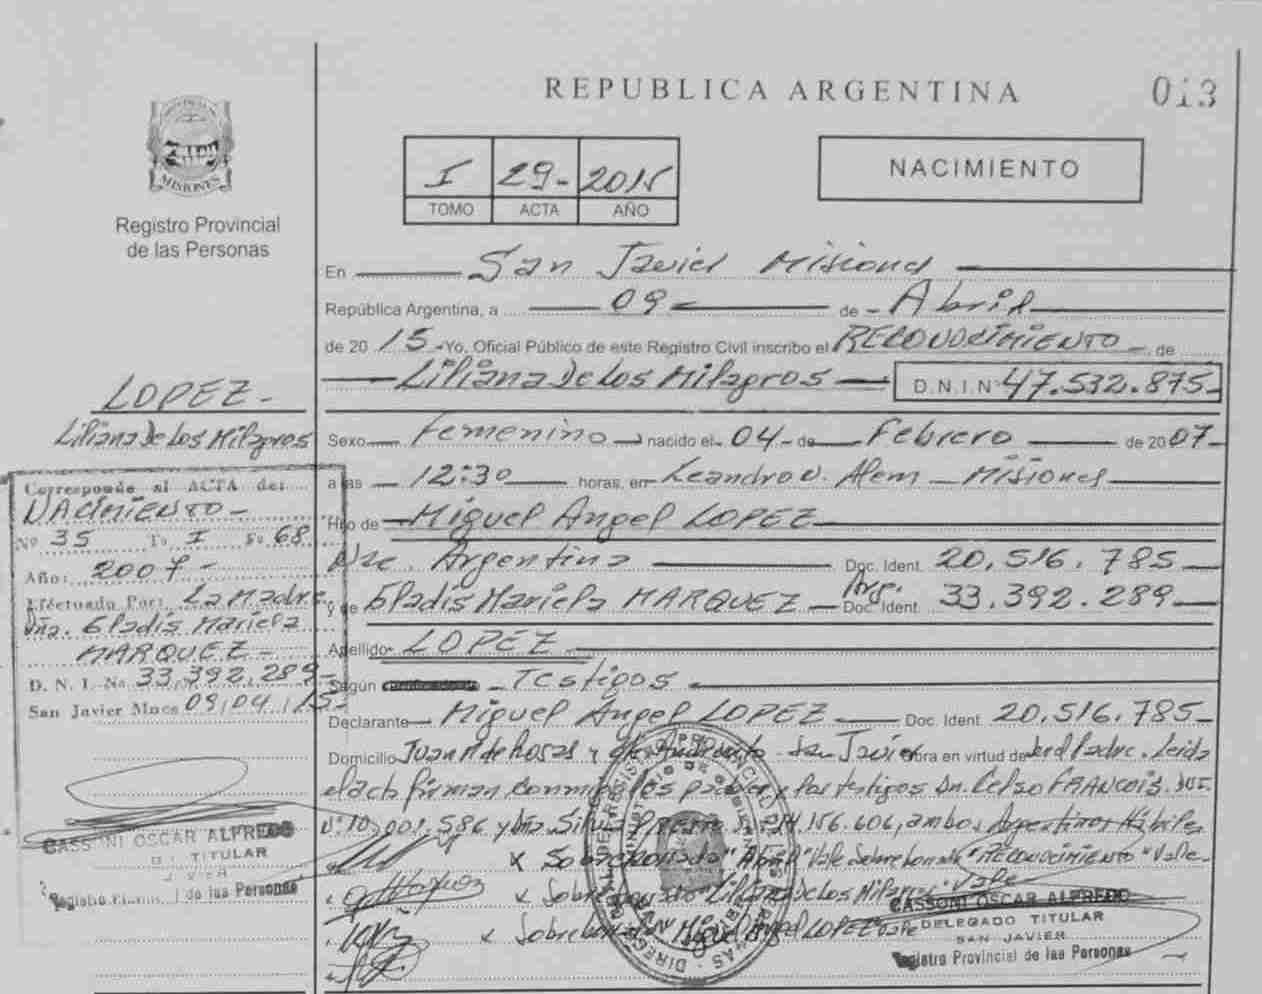 REPUBLICA ARGENTINA
013
MISIONES
Registro Provincial
de las Personas
I 29- 2015
TOMO ACTA AÑO
NACIMIENTO
En San Javier Misiones
República Argentina, a 09 de Abril
de 2015 Yo, Oficial Público de este Registro Civil inscribo el RECONOCIMIENTO de
Liliana De Los Milagros D.N.I.Nº 47.532.875-
LOPEZ-
Liliana De Los Milagros
Sexo Femenino nacido el 04- de Febrero de 2007-
a las 12:30 horas, en Leandro N. Alem - Misiones
Hijo de Miguel Angel LOPEZ
Nac. Argentina Doc. Ident. 20.516.785
y de Gladis Mariela MARQUEZ Arg. Doc. Ident. 33.392.289
Apellido LOPEZ
Según Testigos
Declarante Miguel Angel LOPEZ Doc. Ident. 20.516.785
Corresponde al ACTA de:
NACIMIENTO-
Nº 35 Tº I Fº 68
Año: 2007-
Efectuado Por: La Madre
Dña. Gladis Mariela
MARQUEZ-
D. N. I. Nº 33.392.289-
San Javier Mnes 09/04/15-
Domicilio Juan M de Rosas y San Javier Obra en virtud de ser el Padre. Leida
el acta firman conmigo los padres y los testigos Dn. Celso FRANCOIS. DNI.
Nº 10.001.586 y Dña. 14.156.606, ambos Argentinos Hábiles
x Sobreborrado "Abril" Vale Sobreborrado "RECONOCIMIENTO" Vale-
x Sobreborrado "Liliana De Los Milagros" Vale
x Sobreborrado Miguel Angel LOPEZ Vale
CASSONI OSCAR ALFREDO
TITULAR
Registro Provincial de las Personas
CASSONI OSCAR ALFREDO
DELEGADO TITULAR
SAN JAVIER
Registro Provincial de las Personas